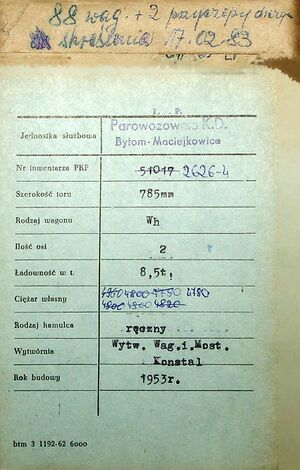 88 wag. + 2 przyczepy
skreślenia 17.02.93
I. P.
Jednostka służbowa
Parowozownia K.D.
Bytom-Maciejkowice
Nr inwentarza PKP 51017 2626-4
Szerokość toru 785mm
Rodzaj wagonu Wh
Ilość osi 2
Ładowność w t. 8,5t.
Ciężar własny
4800 4750 4780
4820
Rodzaj hamulca ręczny
Wytwórnia Wytw. Wag.i.Most.
Konstal
Rok budowy 1953r.
btm 3 1192-62 6000